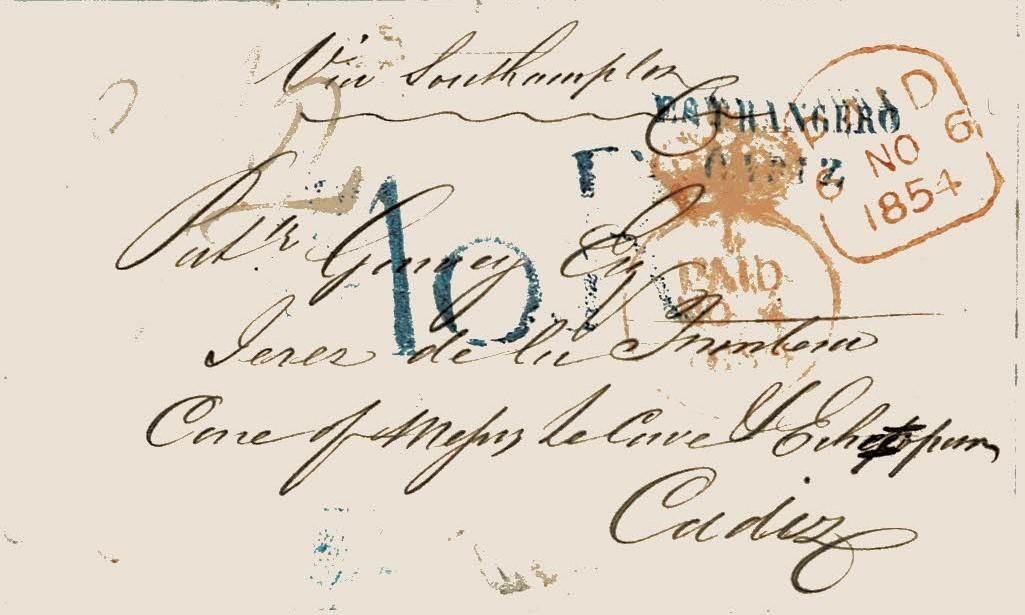 Via Southampton
ESTRANGERO
CADIZ
PAID
6 NO 6
1854
Patk. Garvey Esq
10 R
PAID
Jerez de la Frontera
Care of Messrs Le Cave & Echecopar
Cadiz